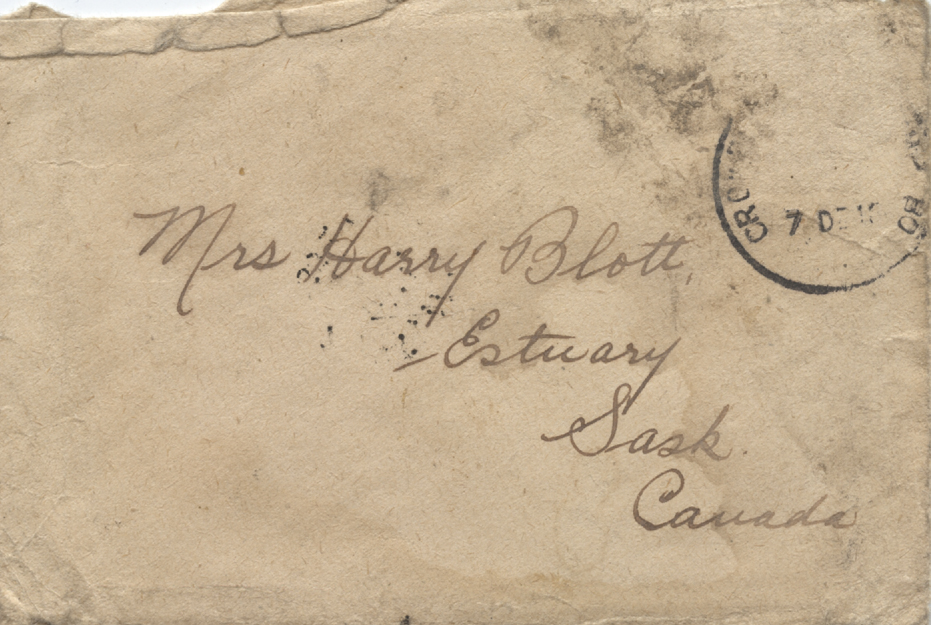 Mrs Harry Blott,
Estuary
Sask.
Canada